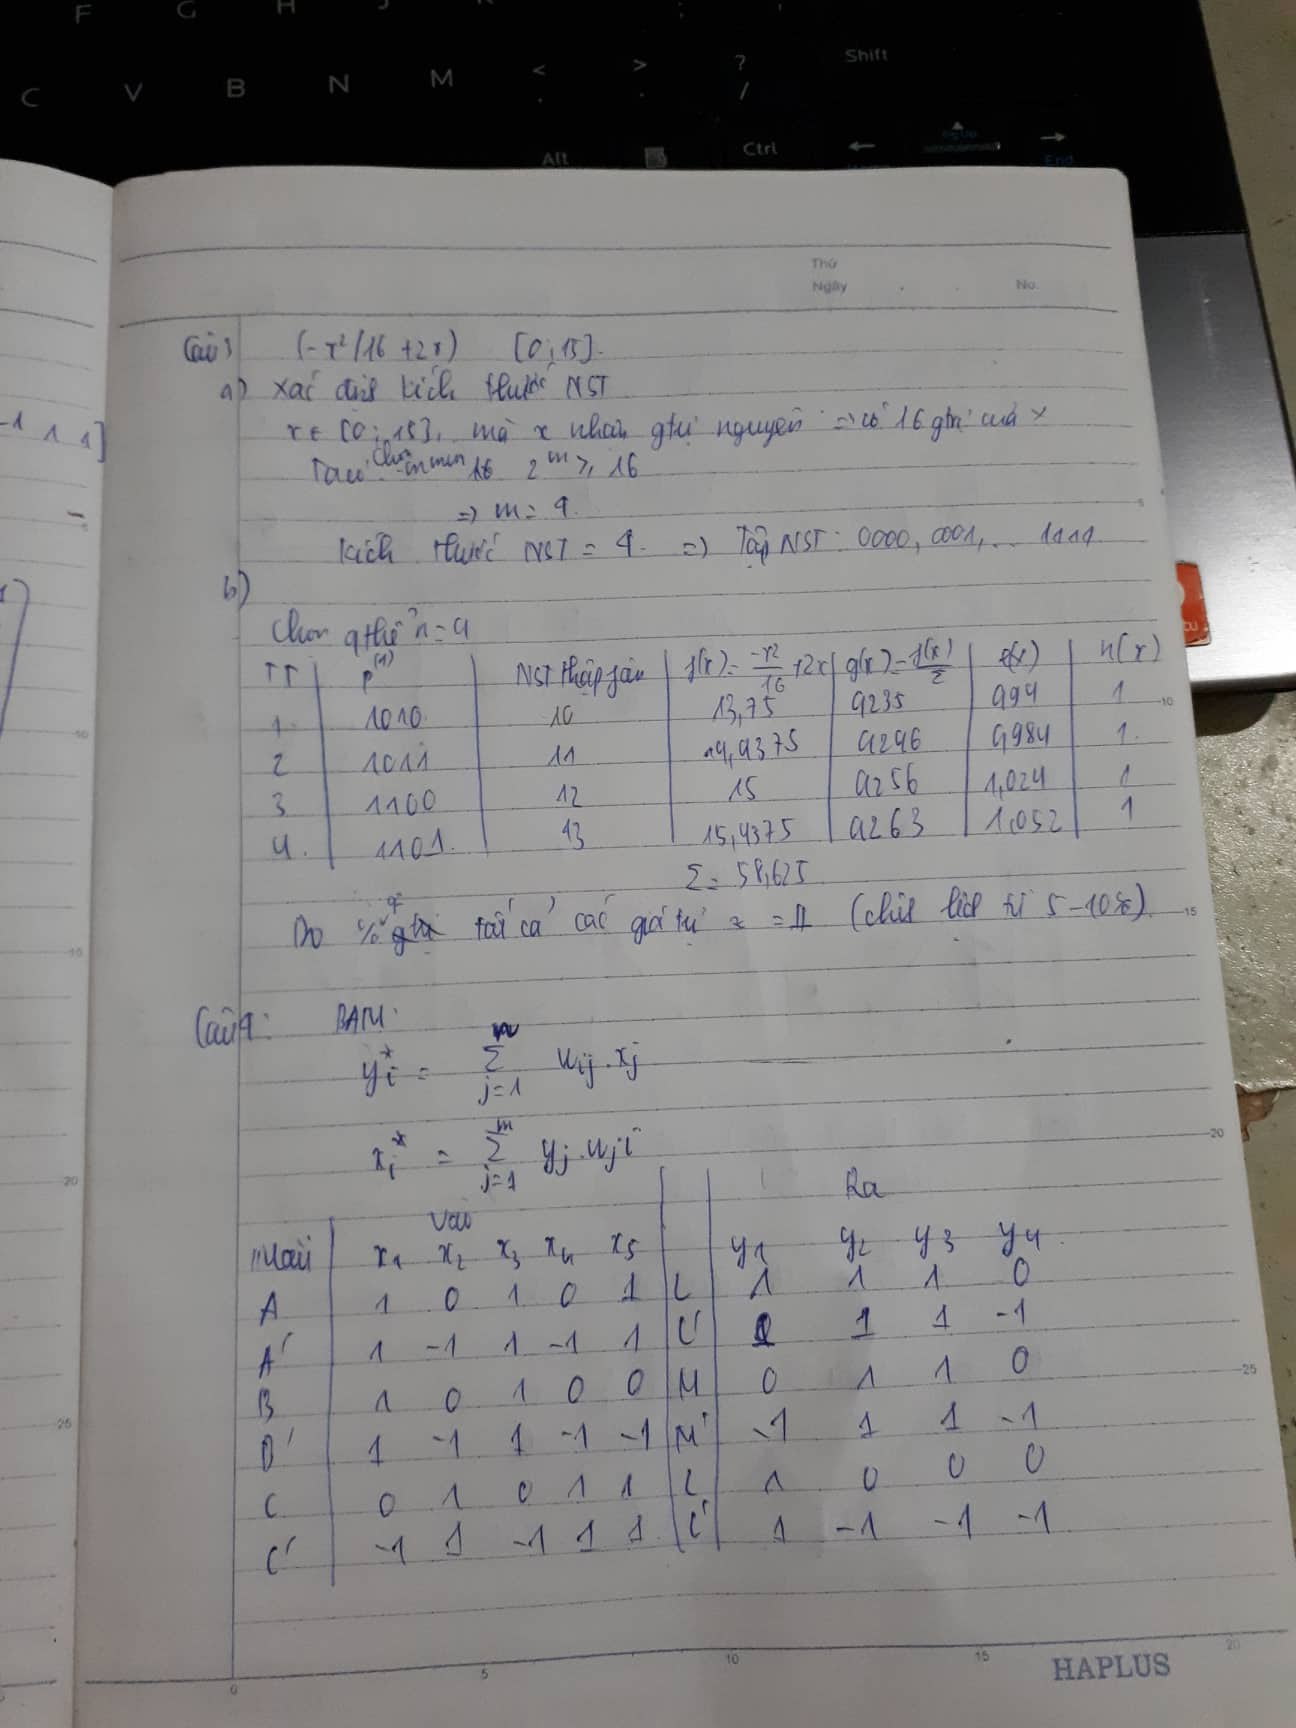 F G H J K
C V B N M < > ? / Shift
Alt Ctrl ← PgUp →
End
Thứ
Ngày No.
Câu 3 (-x²/16 + 2x) [0; 15].
a) Xác định kích thước NST
x ∈ [0; 15], mà x nhận gtrị nguyên => có 16 gtrị của x
Ta có: Chọn m min 16 2^m ≥ 16
=> m = 4.
Kích thước NST = 4. => Tập NST: 0000, 0001, ... 1111
b)
Chọn q thể n = 4
TT P(1) NST thập phân f(x) = -x²/16 + 2x g(x) = f(x)/Σ n(x)
1. 1010 10 13,75 0,235 0,94 1
2 1011 11 14,4375 0,246 0,984 1.
3 1100 12 15 0,256 1,024 1
4. 1101. 13 15,4375 0,263 1,052 1
Σ = 58,625
Do tất cả các giá trị = 1 (chênh lệch từ 5-10%)
Câu 4: BAM:
y*i = Σ j=1 n wij.xj
x*i = Σ j=1 m yj.wji
Vào Ra
Mẫu x1 x2 x3 x4 x5 y1 y2 y3 y4
A 1 0 1 0 1 L 1 1 1 0
A' 1 -1 1 -1 1 L' 1 1 1 -1
B 1 0 1 0 0 M 0 1 1 0
B' 1 -1 1 -1 -1 M' -1 1 1 -1
C 0 1 0 1 1 L 1 0 0 0
C' -1 1 -1 1 1 L' 1 -1 -1 -1
-1 1 1]
5
10
15
20
25
0 5 10 15 20
HAPLUS